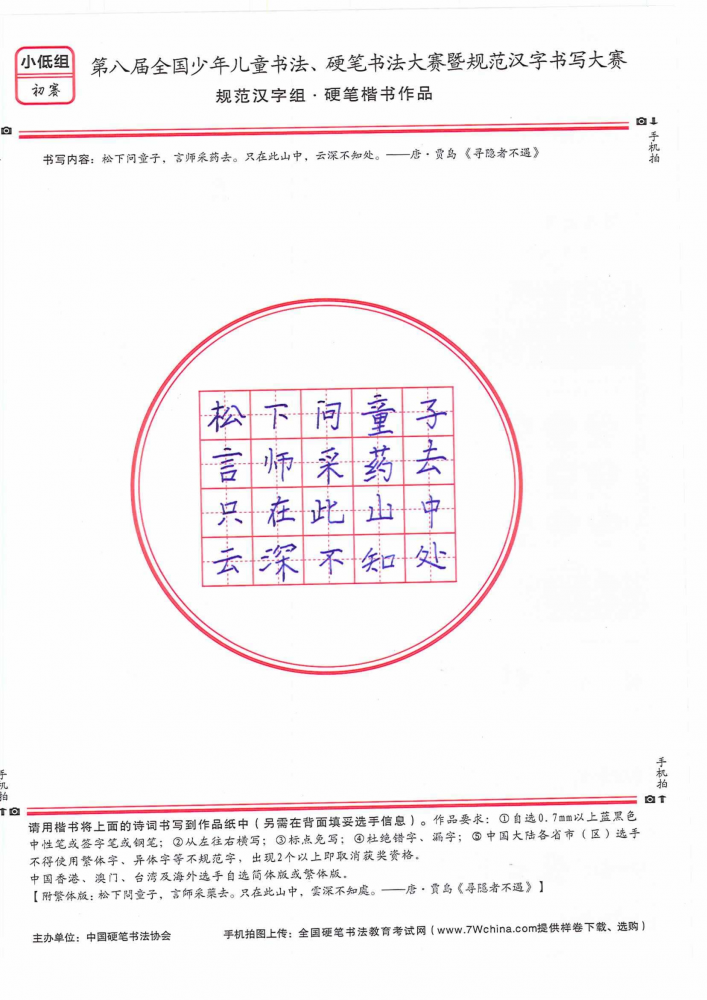 小低组
初赛
第八届全国少年儿童书法、硬笔书法大赛暨规范汉字书写大赛
规范汉字组·硬笔楷书作品
手机拍
书写内容：松下问童子，言师采药去。只在此山中，云深不知处。——唐·贾岛《寻隐者不遇》
松下问童子
言师采药去
只在此山中
云深不知处
手机拍
手机拍
请用楷书将上面的诗词书写到作品纸中（另需在背面填妥选手信息）。作品要求：①自选0.7mm以上蓝黑色
中性笔或签字笔或钢笔；②从左往右横写；③标点免写；④杜绝错字、漏字；⑤中国大陆各省市（区）选手
不得使用繁体字、异体字等不规范字，出现2个以上即取消获奖资格。
中国香港、澳门、台湾及海外选手自选简体版或繁体版。
【附繁体版：松下問童子，言師采藥去。只在此山中，雲深不知處。——唐·贾岛《寻隐者不遇》】
主办单位：中国硬笔书法协会
手机拍图上传：全国硬笔书法教育考试网（www.7Wchina.com提供样卷下载、选购）